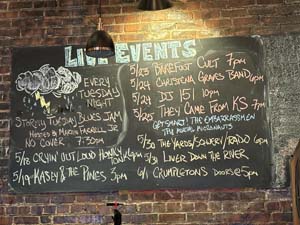 LIVE EVENTS
EVERY
TUESDAY
NIGHT
STORMY TUESDAY BLUES JAM
HOSTED BY MARTIN FARRELL JR
NO COVER 7:30PM
5/18 CRYIN' OUT LOUD HONKY
5/19 KASEY & THE PINES 3PM
5/23 BAREFOOT CULT 7PM
5/24 CHRISTENA GRAVES BAND 6PM
5/24 DJ 151 10PM
5/25 THEY CAME FROM KS 7PM
GET SMART! THE EMBARRASSMENT
5/30 THE YARDS/SQWERV/RADO 6PM
5/31 LIVER DOWN THE RIVER
6/1 CRUMPLETONS DOORS @ 5PM